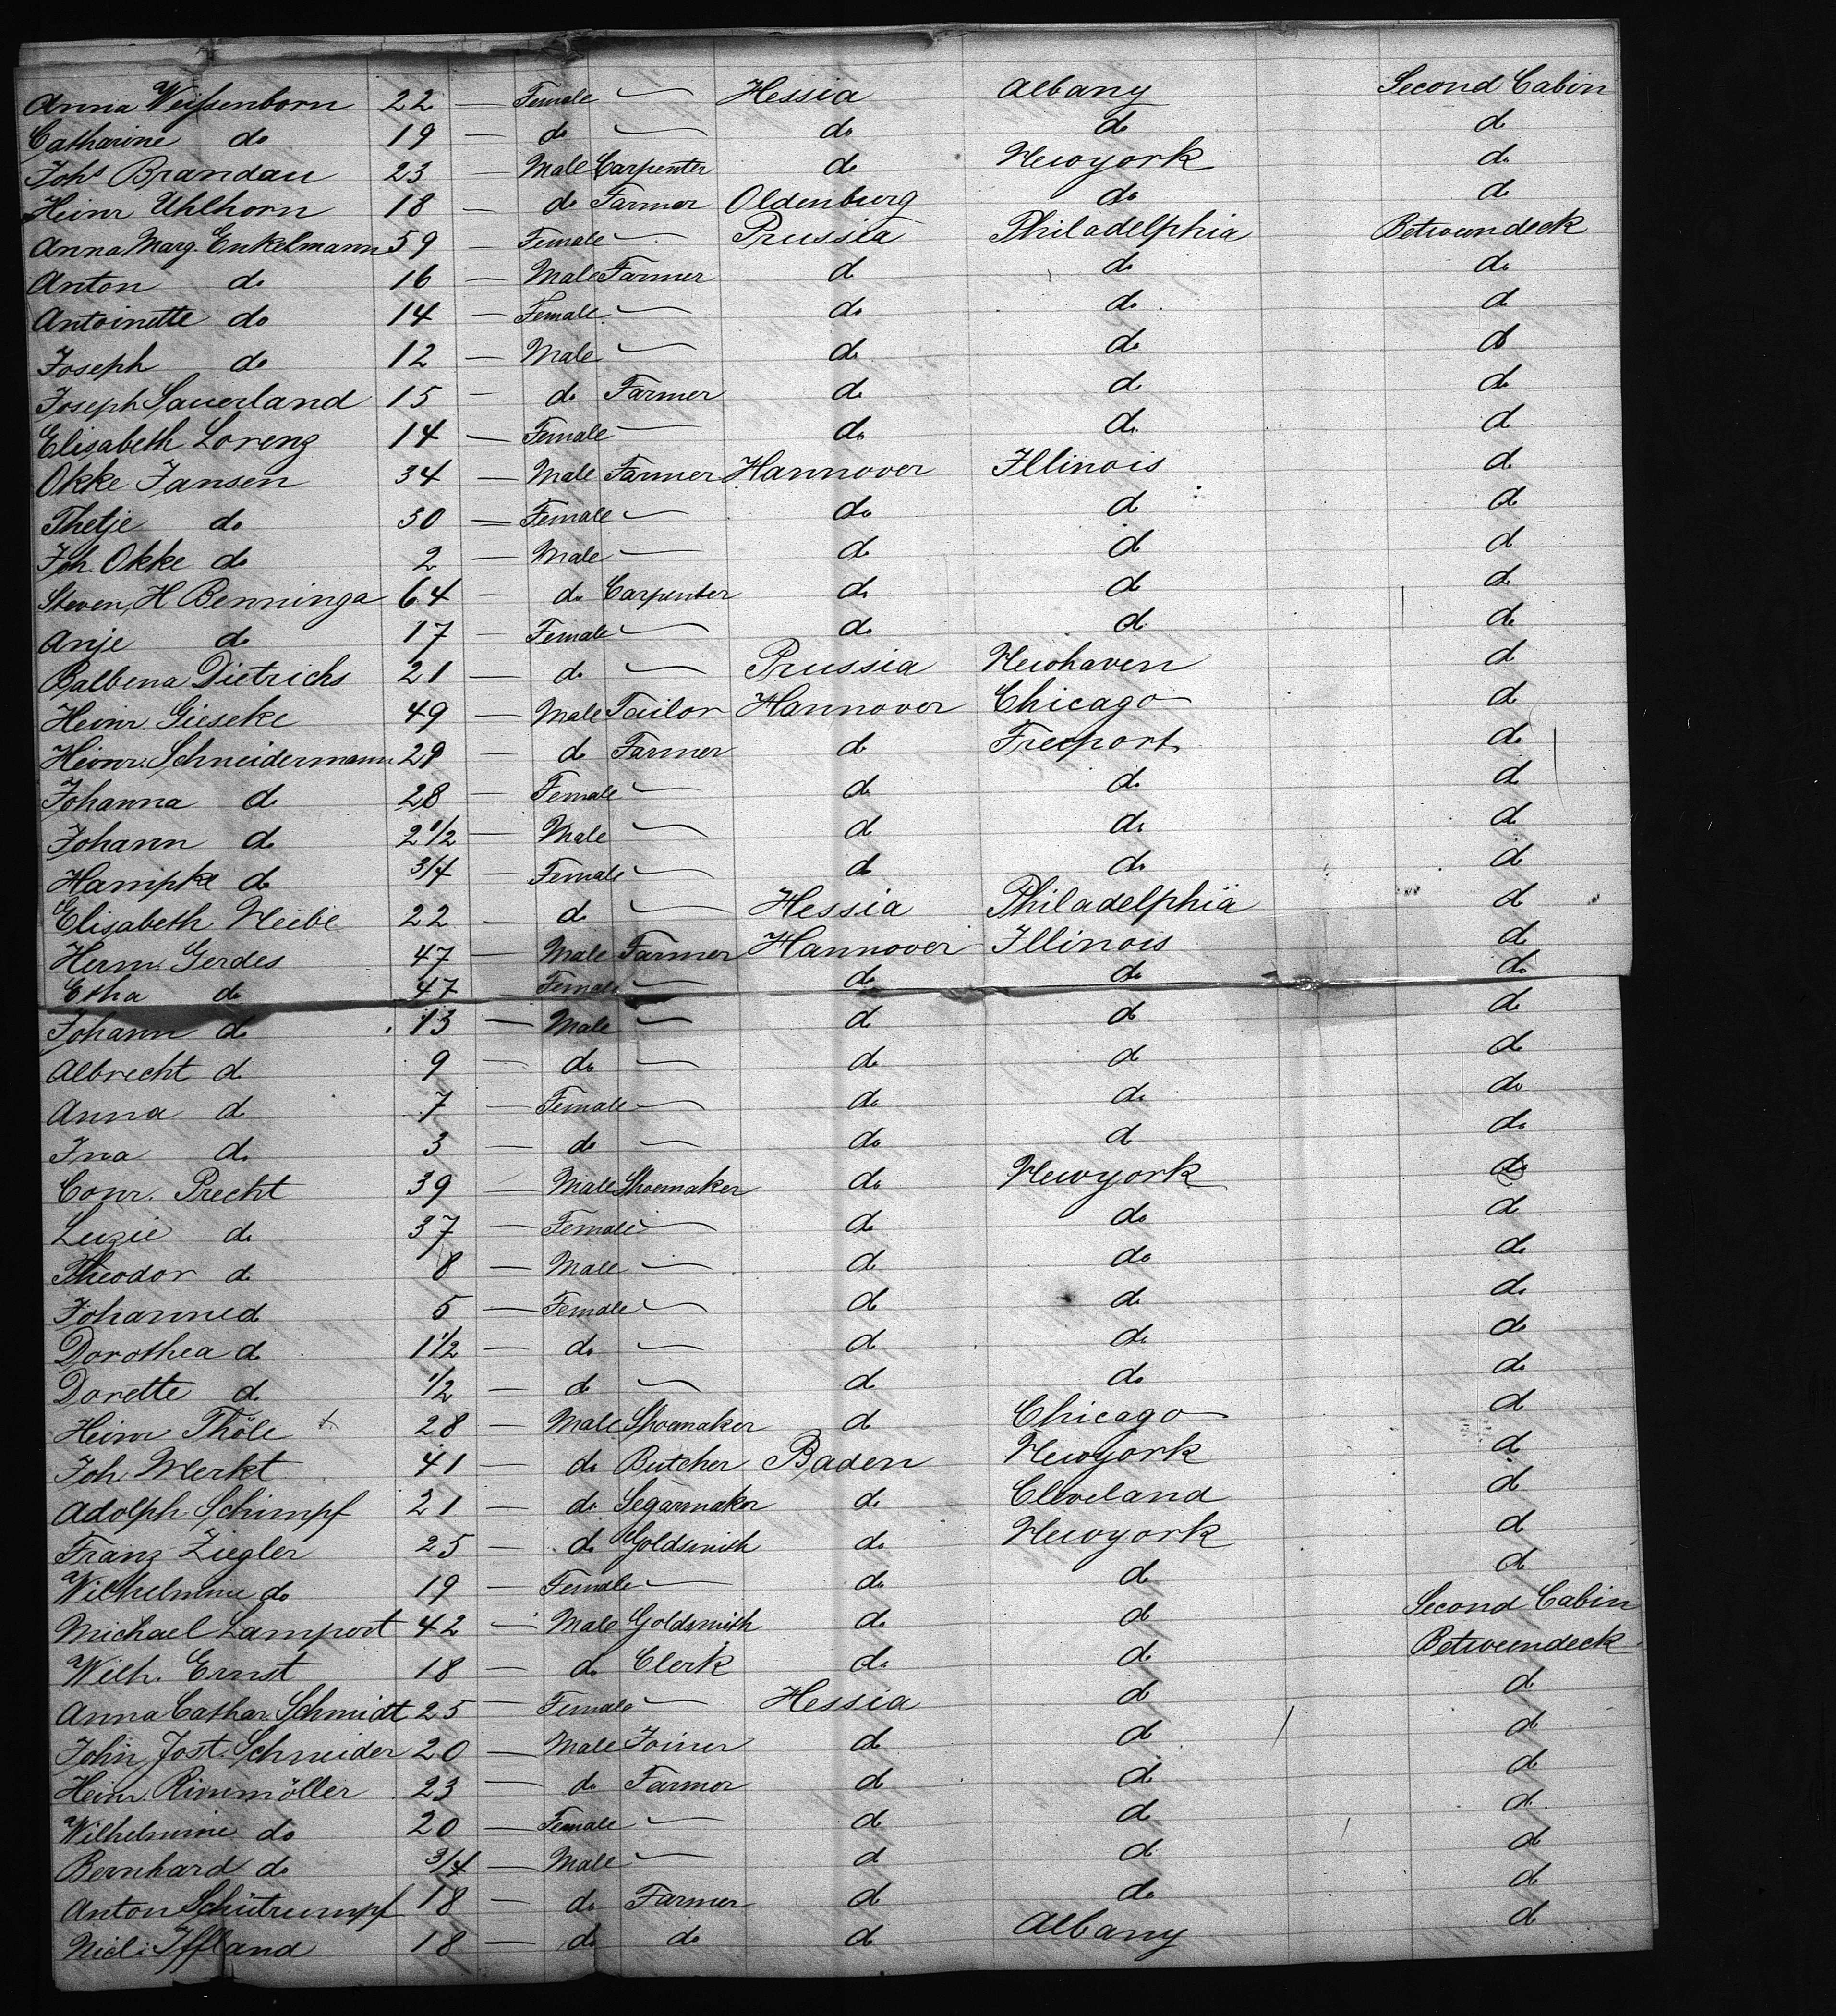 Anna Weissenborn 22 — Female — Hessia Albany Second Cabin
Catharine do 19 — do — do do do
Johs Brandau 23 — Male Carpenter do Newyork do
Heinr Uhlhorn 18 — do Farmer Oldenburg do do
Anna Marg. Enkelmann 59 — Female — Prussia Philadelphia Betweendeck
Anton do 16 — Male Farmer do do do
Antoinette do 14 — Female — do do do
Joseph do 12 — Male — do do do
Joseph Sauerland 15 — do Farmer do do do
Elisabeth Lorenz 14 — Female — do do do
Okke Jansen 34 — Male Farmer Hannover Illinois do
Thetje do 30 — Female — do do do
Joh. Okke do 2 — Male — do do do
Steven H Benninga 64 — do Carpenter do do do
Anje do 17 — Female — do do do
Balbena Dietrichs 21 — do — Prussia Newhaven do
Heinr. Gieseke 49 — Male Tailor Hannover Chicago do
Heinr. Schneidermann 29 — do Farmer do Freeport do
Johanna do 28 — Female — do do do
Johann do 2 1/2 — Male — do do do
Hampke do 3/4 — Female — do do do
Elisabeth Heibe 22 — do — Hessia Philadelphia do
Herm. Gerdes 47 — Male Farmer Hannover Illinois do
Etha do 47 Female — do do do
Johann do 13 — Male — do do do
Albrecht do 9 — do — do do do
Anna do 7 — Female — do do do
Ina do 3 — do — do do do
Conr. Precht 39 — Male Shoemaker do Newyork do
Luzie do 37 — Female — do do do
Theodor do 8 — Male — do do do
Johanne do 5 — Female — do do do
Dorothea do 1 1/2 — do — do do do
Dorette do 1/2 — do — do do do
Heinr Thöle 28 — Male Shoemaker do Chicago do
Joh. Merkt 41 — do Butcher Baden Newyork do
Adolph Schimpf 21 — do Segarmaker do Cleveland do
Franz Ziegler 25 — do Goldsmith do Newyork do
Wilhelmine do 19 — Female — do do do
Michael Lamport 42 — Male Goldsmith do do Second Cabin
Wilh. Ernst 18 — do Clerk do do Betweendeck
Anna Cathar. Schmidt 25 — Female — Hessia do do
John Jost. Schneider 20 — Male Joiner do do do
Heinr. Rimmöller 23 — do Farmer do do do
Wilhelmine do 20 — Female — do do do
Bernhard do 3/4 — Male — do do do
Anton Schütrumpf 18 — do Farmer do do do
Nicl. Iffland 18 — do do do Albany do